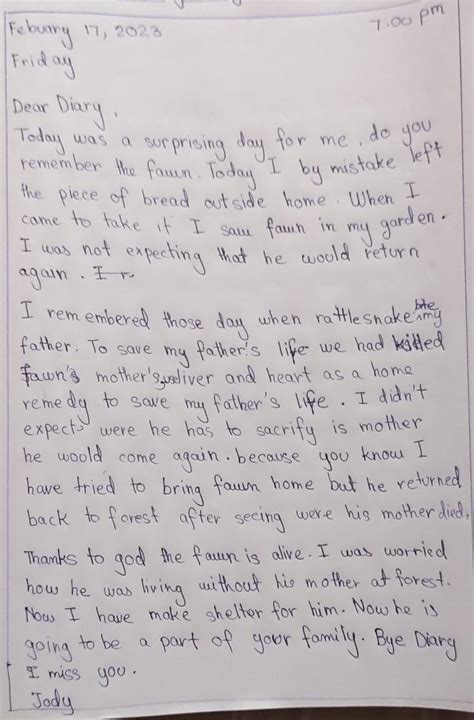 Febuary 17, 2023
7.00 pm
Friday
Dear Diary,
Today was a surprising day for me, do you
remember the fawn. Today I by mistake left
the piece of bread outside home. When I
came to take it I saw fawn in my garden.
I was not expecting that he would return
again.
I remembered those day when rattlesnake bite my
father. To save my father's life we had killed
fawn's mother's, liver and heart as a home
remedy to save my father's life. I didn't
expect were he has to sacrify is mother
he would come again. because you know I
have tried to bring fawn home but he returned
back to forest after seeing were his mother died.
Thanks to god the fawn is alive. I was worried
how he was living without his mother at forest.
Now I have make shelter for him. Now he is
going to be a part of your family. Bye Diary
I miss you.
Jody